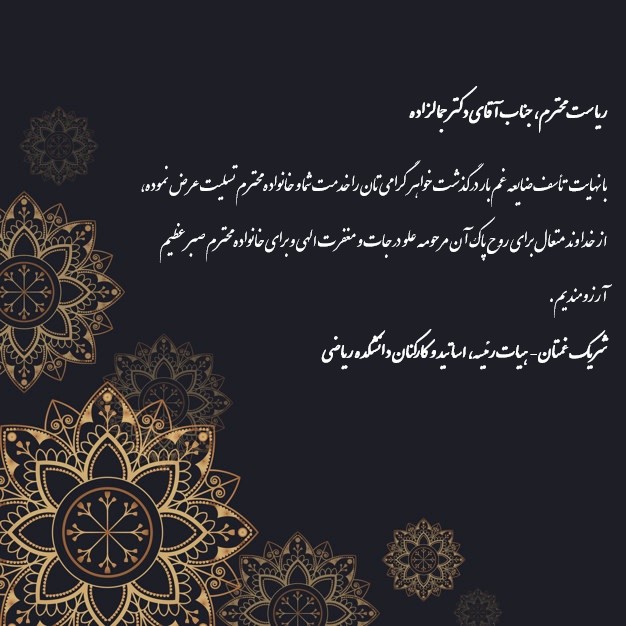 ریاست محترم، جناب آقای دکتر جمالزاده
بانهایت تأسف ضایعه غم بار درگذشت خواهر گرامی تان را خدمت شما و خانواده محترم تسلیت عرض نموده،
از خداوند متعال برای روح پاک آن مرحومه علو درجات و مغفرت الهی و برای خانواده محترم صبر عظیم
آرزومندیم.
شریک غمتان- هیات رئیسه، اساتید و کارکنان دانشکده ریاضی